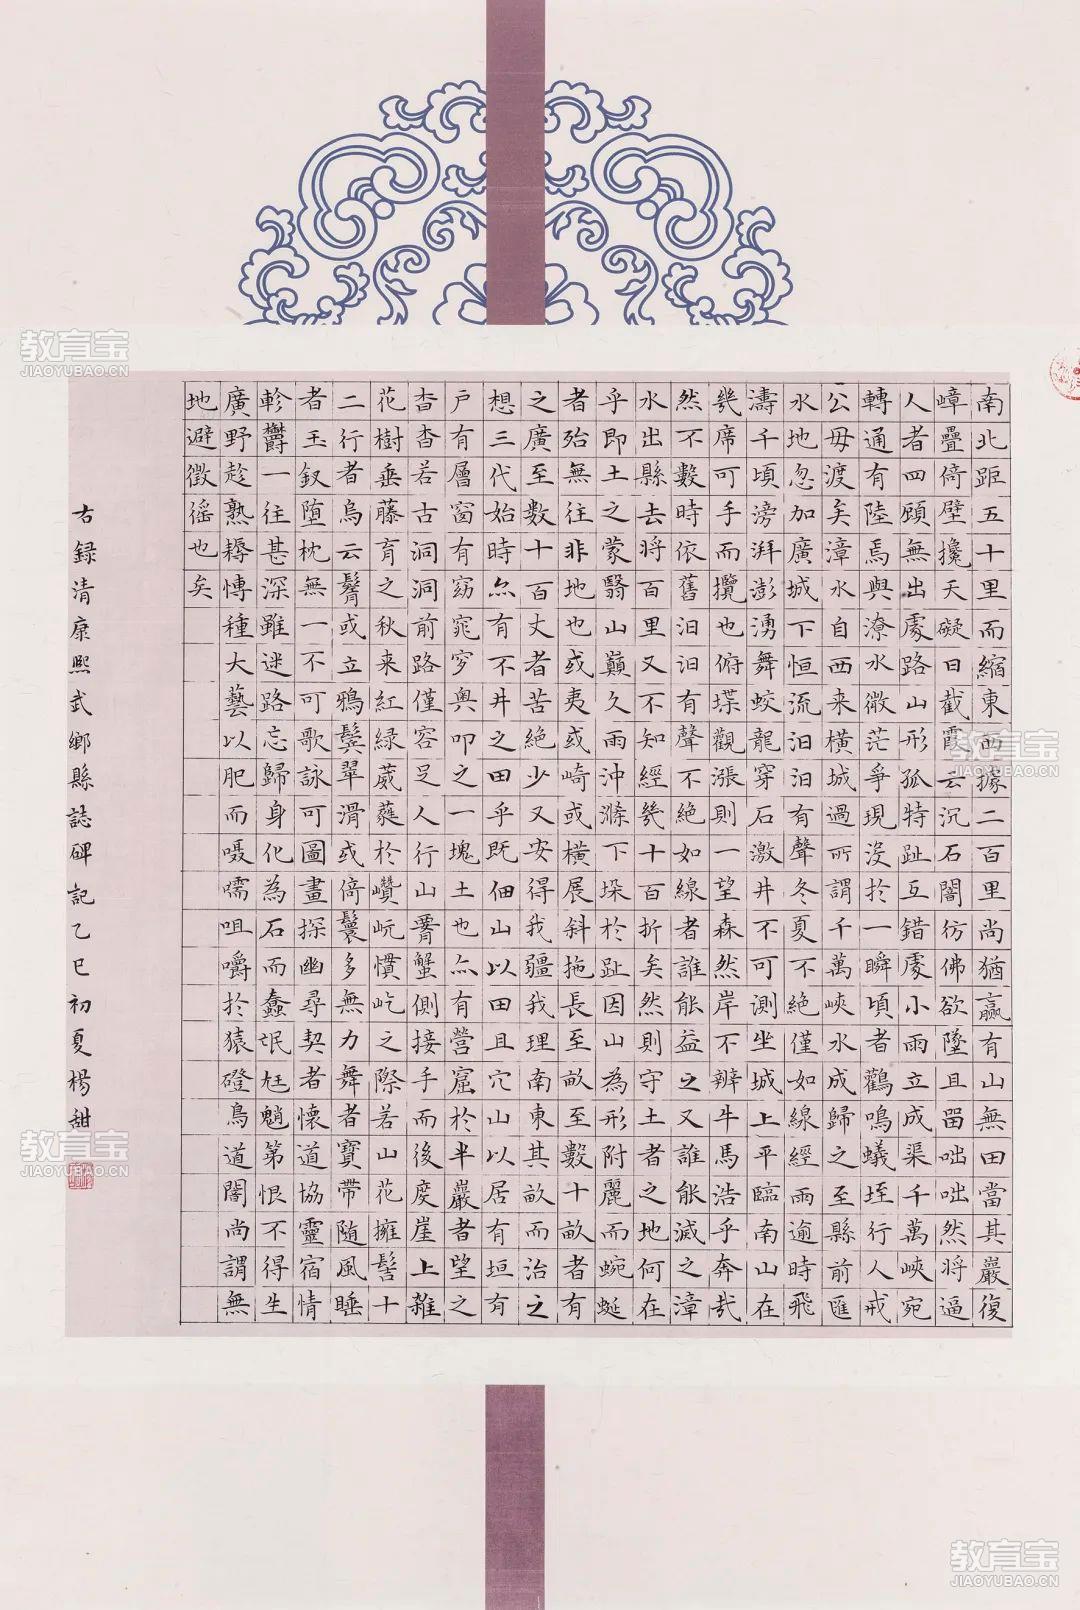 南北距五十里而縮東西據二百里尚猶贏有山無田當其嚴復
嶂疊倚壁攙天礙日截霞云沉石闇彷佛欲墜且畱咄咄然將逼
人者四顧無出處路山形孤特趾互錯處小雨立成渠千萬峽宛
轉通有陸焉與潦水微茫爭現沒於一瞬頃者鸛鳴蟻垤行人戒
公毋渡矣漳水自西来橫城過所謂千萬峽水成歸之至縣前匯
水地忽加廣城下恒流汩汩有聲冬夏不絕僅如線經雨逾時飛
濤千頃滂湃澎湧舞蛟龍穿石激井不可測坐城上平臨南山在
幾席可手而攬也俯堞觀漲則一望森然岸不辨牛馬浩乎奔哉
然不數時依舊汩汩有聲不絕如線者誰能益之又誰能減之漳
水出縣去将百里又不知經幾十百折矣然則守土者之地何在
乎即土之蒙翳山巔久雨沖滌下垛於趾因山為形附麗而蜿蜒
者殆無往非地也或夷或崎或橫展斜拖長至畝至數十畝者有
之廣至數十百丈者苦絕少又安得我疆我理南東其畝而治之
想三代始時亦有不井之田乎既佃山以田且穴山以居有垣有
戸有層窗有窈窕穸奧叩之一塊土也亦有營窟於半巖者望之
杳杳若古洞洞前路僅容足人行山霤蟹側接手而後度崖上雜
花樹垂藤育之秋来紅綠葳蕤於巑岏慣屹之際若山花擁髻十
二行者烏云鬌或立鴉鬓翠滑或倚鬟多無力舞者寶帶随風睡
者玉釵堕枕無一不可歌詠可圖畫探幽尋契者懷道協靈宿情
軫欝一往甚深雖迷路忘歸身化為石而蠢氓尩魈第恨不得生
廣野趁熟耨慱種大藝以肥而嗫嚅咀嚼於猿磴鳥道闇尚謂無
地避徵徭也矣
右錄清康熙武鄉縣誌碑記乙巳初夏楊甜
教育宝
JIAOYUBAO.CN
教育宝
JIAOYUBAO.CN
教育宝
JIAOYUBAO.CN
教育宝
JIAOYUBAO.CN
教育宝
JIAOYUBAO.CN